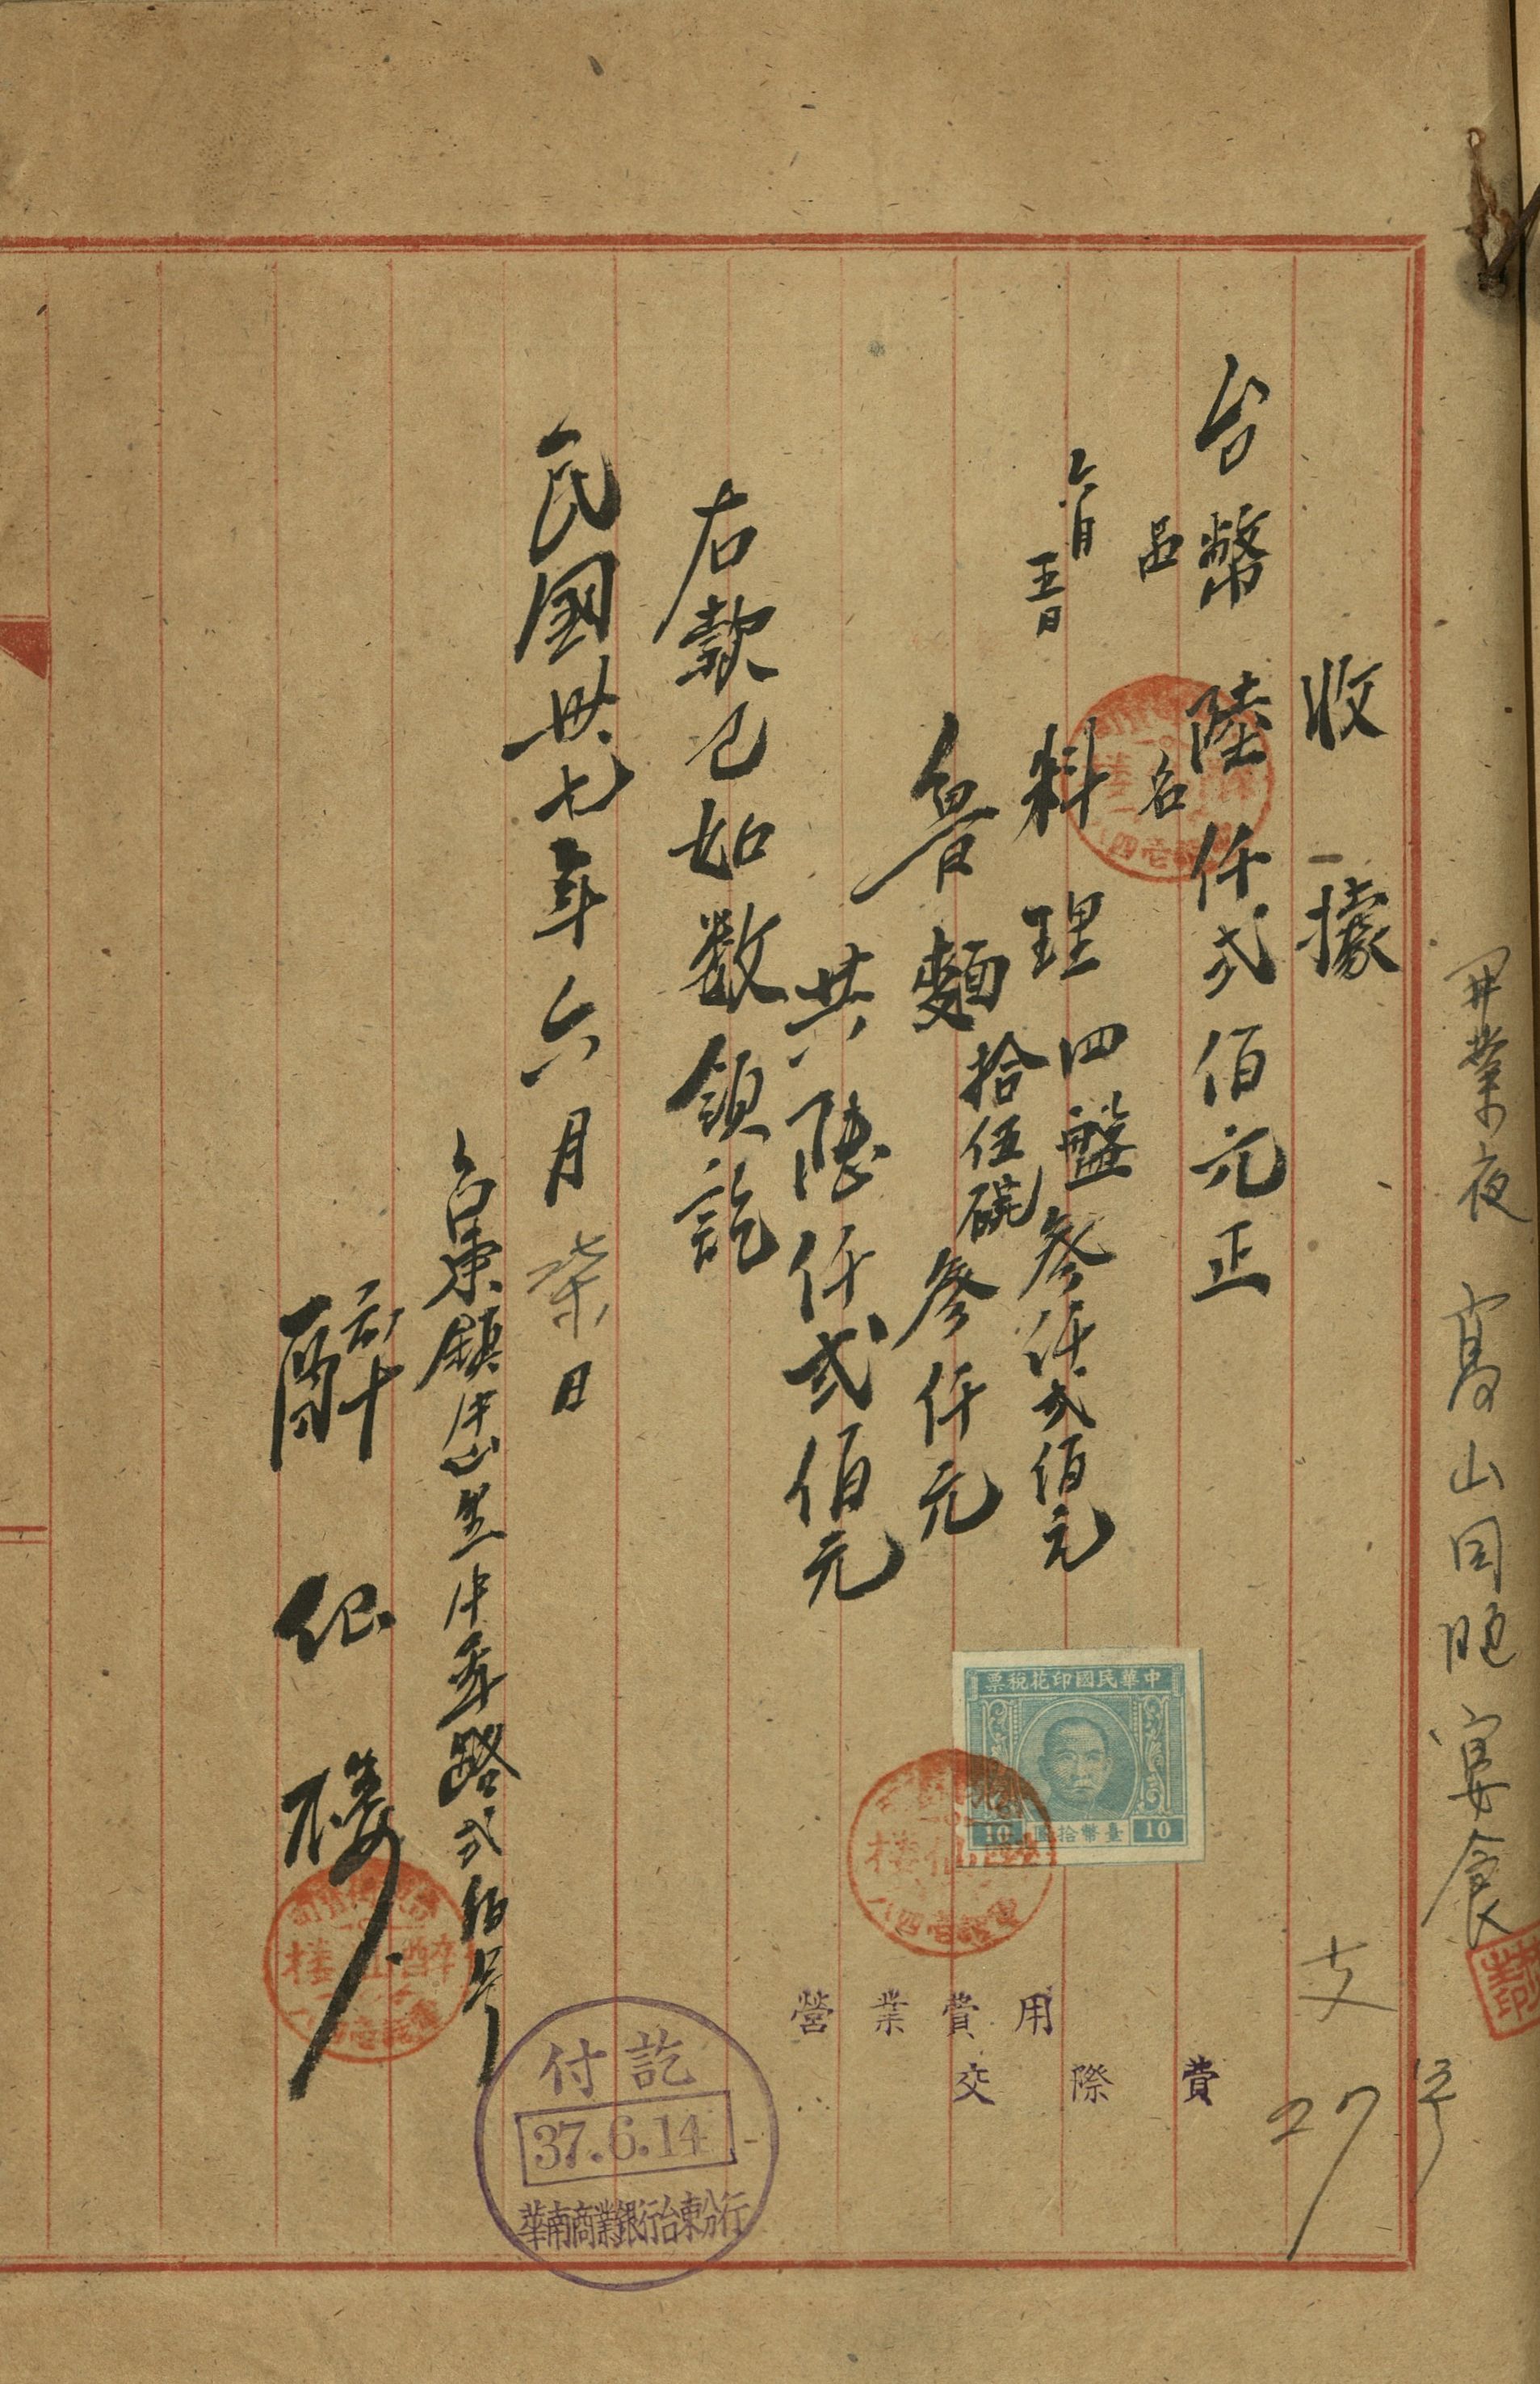 開業夜 高山同胞宴食
收據
台幣陸仟弍佰元正
品名
六月五日
料理四盤參仟弍佰元
魯麵拾伍碗參仟元
共陸仟弍佰元
右款已如数領訖
民國卅七年六月柒日
台東鎮中山里中華路弍佰号
醉仙樓
中華民國印花稅票
10 臺幣拾圓 10
醉仙楼
營業費用
交際費
支
27号
付訖
37.6.14
華南商業銀行台東分行